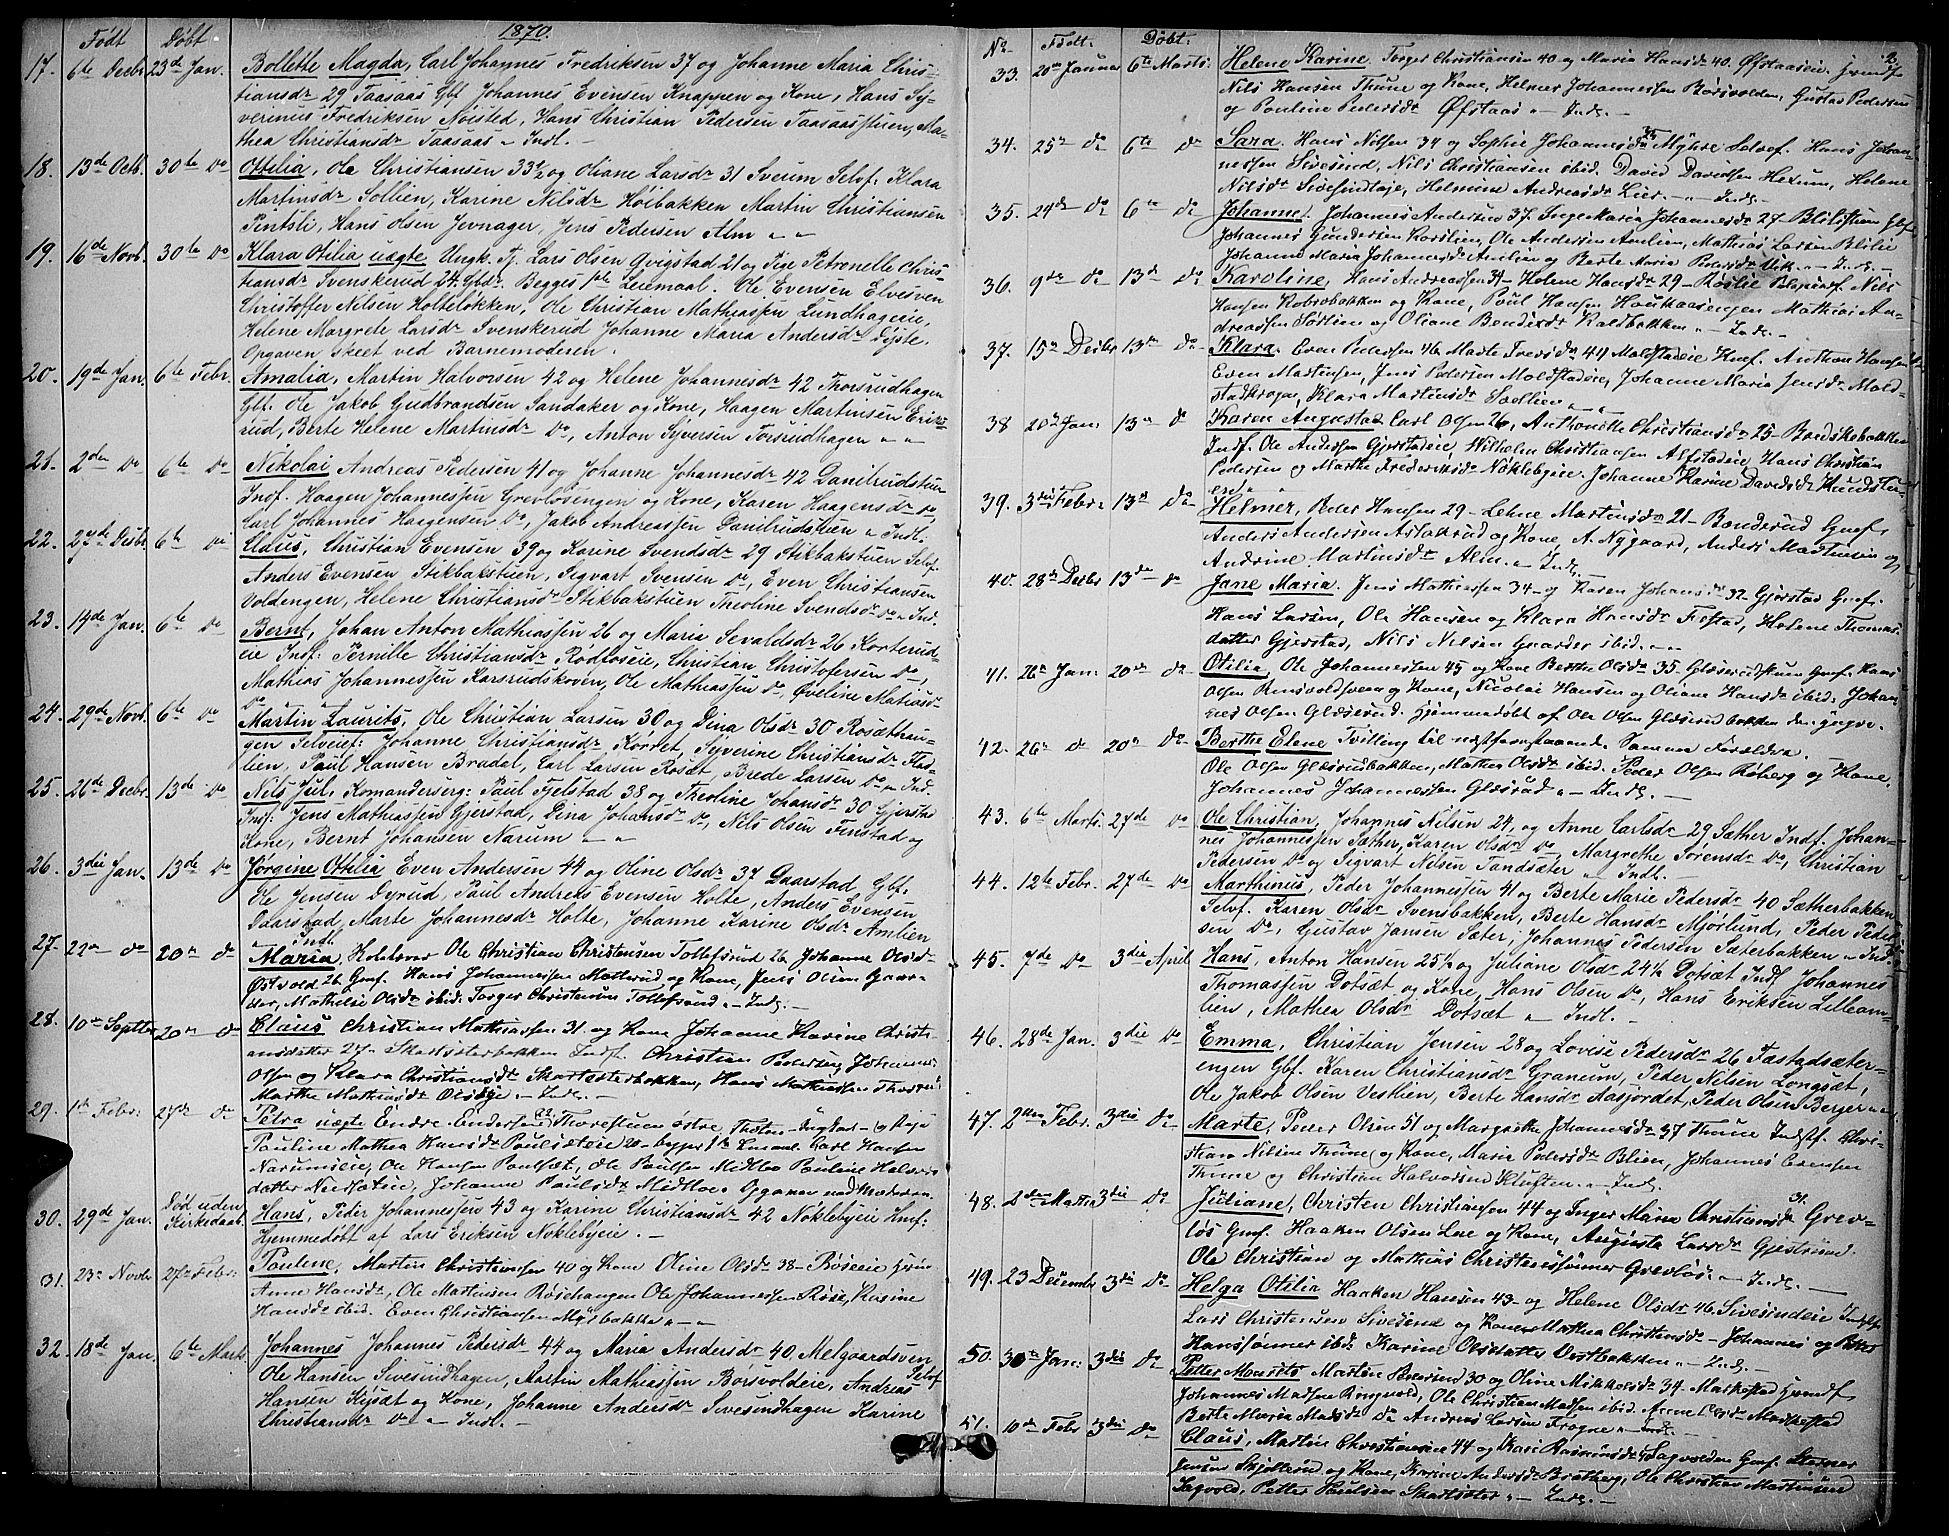 Født Døbt 1870.
17. 6te Decbr 23de Jan. Bollette Magda, Carl Johannes Fredriksen 37 og Johanne Maria Chris-
tiansdr 29 Taasaas Gbf. Johannes Evensen Knappen og Kone, Hans Sy-
verinus Fredriksen Nøisted, Hans Christian Pedersen Taasaasstuen, Ma-
thea Christiansdr Taasaas " Indl. —
18. 13de Octb. 30te Do Ottilia, Ole Christiansen 33½ og Oliane Larsdr 31 Sveum Selvf. Klara
Martinsdr Sollien, Karine Nilsdr Høibakken Martin Christiansen
Pintsli, Hans Olsen Jevnager, Jens Pedersen Alm " "
19. 16de Novb. 30te Do Klara Otilia uægte Ungk. Tj. Lars Olsen Qvigstad 21 og Pige Petronelle Chris
tiansdr Svenskerud 24 Gbdr. Begges 1ste Leiermaal. Ole Evensen Elvesven
Christoffer Nilsen Holteløkken, Ole Christian Mathiassen Lundhageie,
Helene Margrete Larsdr Svenskerud Johanne Maria Andersdr Lyste.
Opgaven skeet ved Barnemoderen.
20. 19de Jan. 6te Febr. Amalia, Martin Halvorsen 42 og Helene Johannesdr 42 Thorsrudhagen
Gbf. Ole Jakob Gudbrandsen Sandaker og Kone, Haagen Martinsen Eriks
rud, Berte Helene Martinsdr Do, Anton Syversen Torsrudhagen " "
21. 2den Do 6te Do Nikolai Andreas Pedersen 41 og Johanne Johannesdr 42 Danilrudstuen
Indf. Haagen Johannessen Grevlosengen og Kone, Karen Haagensdr Do,
Carl Johannes Haagensen Do, Jakob Andreassen Danilrudstuen " Indl.
22. 27de Desbr 6te Do Claus, Christian Evensen 39 og Karine Svendsdr 29 Stikbakstuen Selvf.
Anders Evensen Stikbakstuen, Sigvart Svensen Do, Even Christiansen
Voldengen, Helene Christiansdr Stikbakstuen Theoline Svendsdr Do " Ind.
23. 14de Jan. 6te Do Bernt, Johan Anton Mathiassen 26 og Maria Sevaldsdr 26 Korterud-
eie Indf: Pernille Christiansdr Rødloseie, Christian Christofersen Do,
Mathias Johannessen Karsrudskoven, Ole Mathiassen Do, Øveline Matiasdr
Do
24. 29de Novb. 6te Do Martin Laurits, Ole Christian Larsen 30 og Dina Olsdr 30 Rosæthau-
gen Selveief: Johanne Christiansdr Korret, Syverine Christiansdr Flad-
lien, Paul Hansen Bradel, Carl Larsen Rosæt, Brede Larsen Do " Ind.
25. 26de Decbr. 13de Do Nils Jul, Komanderserg: Paul Fjelstad 38 og Theoline Johansdr 30 Gjerstad
Indf: Jens Mathiassen Gjerstad, Dina Johansdr Do, Nils Olsen Finstad og
Kone, Bernt Johansen Narum " "
26. 3die Jan. 13de Do Jørgine Ottilia Even Andersen 44 og Oline Olsdr 37 Daarstad Gbf.
Ole Jensen Dyrud, Paul Andreas Evensen Holte, Anders Evensen
Daarstad, Marte Johannesdr Holte, Johanne Karine Olsdr Amlien
" Indl.
27. 22de do 20de do Maria, Ole Christian Christensen Tollefsrud 26 Johanne Olsdr
Østvold 26 Gmf. Hans Johannessen Matterud og Kone, Jens Olsen Gaar-
der, Mathilie Olsdr ibid. Torger Christensen Tollefsrud " Indl. —
28. 10de Septbr 20de do Claus Christian Mathiassen 31. og Kone Johanne Karine Christi
ansdatter 27. Skartsæterbakken Indf. Christian Pedersen, Johannes
Olsen og Klara Christiansdr Skartsæterbakken, Hans Mathiassen
Marthe Mathisdr " Indl. —
29. 1ste Febr. 27de do Petra uægte Endre Endersen Thorestuen østre, Thoten - Ungkarl - og Pige
Pauline Mathea Hansdr Paulsæteie 20 - begges 1ste Leierm. Carl Hansen
Narumseie, Ole Hansen Paulsæt, Ole Paulsen Midtloe Pauline Halvors
datter Nedsæteie, Johanne Paulsdr Midtloe. Opgaven ved Moderen.
30. 29de Jan. Død uden Kirkedaab. Hans, Peder Johannessen 43 og Karine Christiansdr 42 Nøklebyeie Husf:
Hjemmedøbt af Lars Eriksen Nøklebyeie. —
31. 23de Novbr 27de Febr: Pauline, Martin Christiansen 40 og Kone Oline Olsdr 38 - Røseeie
Anne Hansdr, Ole Martinsen Røsehaugen Ole Johannessen Røse, Karine
Hansdr ibid. Even Christiansen " —
32. 18de Jan. 6te Marts Johannes Johannes Pedersdr 44 og Maria Andersdr 40, Melgaardsven
Selvf
Ole Hansen Sivesindhagen, Martin Mathiassen Borsvoldeie, Andreas
Hansen Kysdt og Kone, Johanne Andersdr Sivesindhagen Karine
Christiansdr Do " Indl. —
No Født. Døbt. 2.
33. 20de Januar 6te Marts: Helene Karine, Torger Christiansen 40 og Maria Hansdr 40. Øfstaaseie.
Nils Hansen Thune og Kone, Helmer Johannessen Borsvolden, Gustav Pedersen
og Pauline Pedersdr Øfstaas " Indl. —
34. 25de do 6te do Sara. Hans Nilsen 34 og Sophie Johannesdr Myhre Selvf. Hans Johan-
nessen Sivesind, Nils Christiansen ibid. David Davidsen Hexum, Helene
Nilsdr Sivesindlaje, Helmine Andreasdr Lier. " Indl. —
35. 24de do 6te do Johanne, Johannes Andersen 37. Inge Maria Johannesdr 27 - Blilistuen Gbf.
Johannes Gundersen Karslien, Ole Andersen Amlien, Mathias Larsen Blilie
Johanne Maria Johannesdr Amlien og Berte Maria Pedersdr Vik. " Indl. —
36. 9de do 13de do Karoline, Hans Andreassen 34 - Helene Hansdr 29 - Røslie Nils
Hansen Kobrobakken og Kone, Poul Hansen Haukaasengen Mathias An-
dreassen Sørlien og Oliane Bendixdr Kaldbakken " Indl. —
37. 15de Desbr 13de do Klara. Even Pedersen 46 Marte Iversdr 44 Moldstadeie Husf. Anthon Hansen
Even Martinsen, Jens Pedersen Moldstadeie, Johanne Maria Jensdr Mold-
stadkrogen, Klara Martinsdr Sollien " "
38 20de Jan. 13de do Karen Augusta Carl Olsen 26, Anthonette Christiansdr 25 -
Indf. Ole Andersen Gjerstadeie, Wilhelm Christiansen Alfstadeie, Hans Christian
Pedersen og Marthe Frederiksdr Nøklebyeie. Johanne Karine Davidsdr
39. 3die Febr. 13de do Helmer, Peder Hansen 29 - Lehne Martinsdr 21 - Bønderud Gmf.
Anders Andersen Aslaksrud og Kone, A. Nygaard, Anders Martinsen og
Andrine Martinsdr Alm. " Indl.
40. 28de Decbr 13de do Jane Maria. Jens Mathiesen 34 - og Karen Johansdr 32 - Gjørstad Gmf.
Hans Larsen, Ole Hansen og Klara Hansdr Fiestad, Helene Thomas
datter Gjerstad, Nils Nilsen Gaarder ibid. "
41. 26de Jan. 20de do Otilia, Ole Johannessen 45 og Kone Berthe Olsdr 35. Glæserudstuen Gmf. Hans
Olsen og Kone, Nicolai Hansen og Oliane Hansdr ibid. Johan-
nes Olsen Glæserud. Hjemmedøbt af Ole Olsen Glæserudbakken
42. 26de do 20de do Berthe Elene Tvilling til næstforanstaaende. Samme Forældre.
Ole Olsen Glæserudbakken, Mathea Olsdr ibid. Peder Olsen Røberg og Kone,
Johannes Johannessen Glæserud " Indl. —
43. 6te Marts. 27de Do Ole Christian, Johannes Nilsen 24, og Anne Carlsdr 29 Sæther Indf. Johan-
nes Johannessen Sæther, Karen Olsdr Do, Margrethe Sørensdr Do, Christian
Pedersen Do og Sigvart Nilsen Tandsæter " Indl. —
44. 12te Febr. 27de Do Marthinus, Peder Johannessen 41 og Berte Marie Pedersdr 40 Sætherbakken
Selvf. Karen Olsdr Svensbakken, Berte Hansdr Mjørlund, Peder Peder-
sen Do, Gustav Jansen Sæter, Johannes Pedersen Sæterbakken " Ind.
45. 7de Do 3die April Hans, Anton Hansen 25½ og Juliane Olsdr 24½ Dotsæt Indf. Johannes
Thomassen Dotsæt og Kone, Hans Olsen Do, Hans Eriksen Lilleam-
lien, Mathea Olsdr Dotsæt " Indl. —
46. 28de Jan. 3die Do Emma, Christian Jensen 28 og Lovise Pedersdr 26 Fastadsæter-
engen Gbf. Karen Christiansdr Graneum, Peder Nilsen Longsæt,
Ole Jakob Olsen Vesthien, Berte Hansdr Aasjordet, Peder Olsen Berger " "
47. 2den Febr. 3die Do Marte, Peder Olsen 51 og Margrethe Johannesdr 37 Thune Chri-
stian Nilsen Thune og Kone, Marie Pedersdr Blien, Johannes Evensen
Thune og Christian Halvorsen Kluften. " Indl.
48. 2den Marts 3die Do Juliane, Christen Christiansen 44 og Inger Marie Christiansdr 31. Grev-
løs Gmf. Haaken Olsen Lere og Kone, Augusta Larsdr Gjestrund.
Ole Christian og Mathias Christensønner Grevløs. " Indl. —
49. 23 December 3die Do Helga Otilia Haaken Hansen 43 - og Helene Olsdr 46. Sivesindeie
Lars Christensen Sivesind og Kone, Mathea Christensdr - Johannes og Peter
Hanssønner ibid. Karine Olsdatter Vestbakken " Indl. —
50. 30te Jan. 3die Do Petter Mouritz Morten 30 og Oline Mikkelsdr 34. Markestad
Johannes Madsen Ringvold, Ole Christian Madsen ibid. Anne Olsdr Markestad
Berte Maria Madsdr Do Andreas Larsen Frogne " Indl.
51. 10de Febr 3die Do Claus, Marten Christiansen 44 og Kari Rasmusdr Sagvolden Gmf.
Jensen Skjelbred og Kone, Karine Andersdr Bratberg, Ole Christian Martinsen
Sagvold, Petter Paulsen Skartsæter " Indl. —